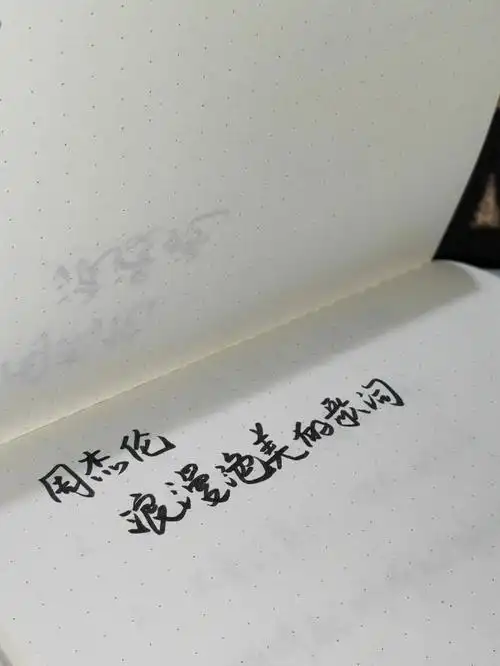 周杰伦
浪漫绝美的歌词